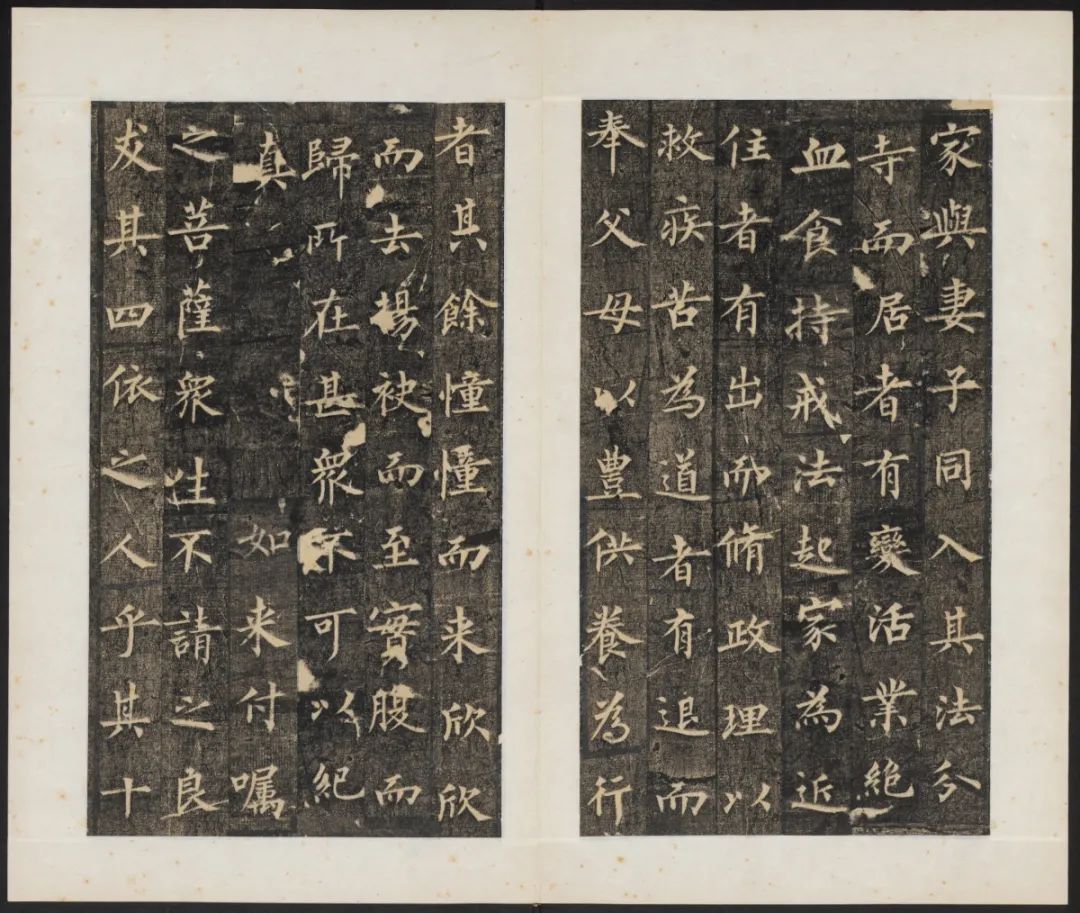 家與妻子同入其法分
寺而居者有變活業絕
血食持戒法起家為近
住者有出而脩政理以
救疾苦為道者有退而
奉父母以豐供養為行
者其餘憧憧而来欣欣
而去揚袂而至實腹而
歸所在甚眾不可以紀
真 如来付囑
之菩薩眾生不請之良
友其四依之人乎其十